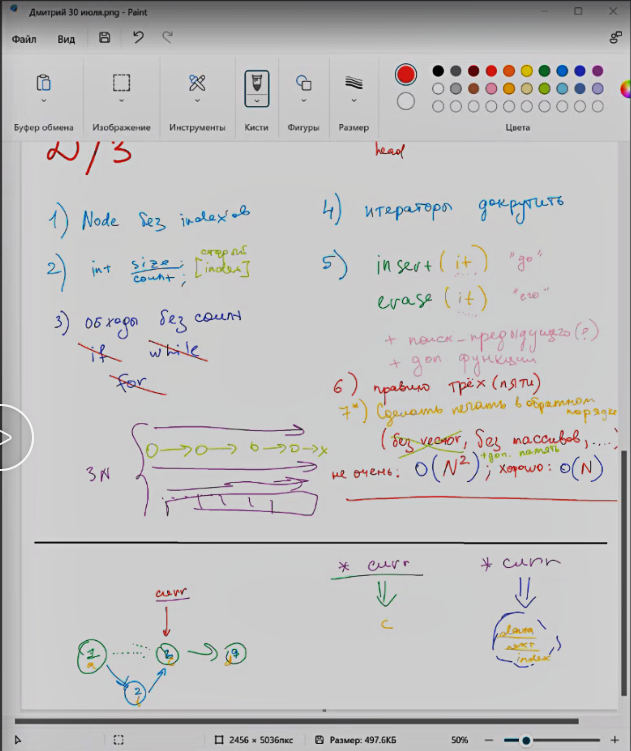 Дмитрий 30 июля.png - Paint
Файл Вид
Буфер обмена Изображение Инструменты Кисти Фигуры Размер Цвета
Д/З
head
1) Node без index'ов
2) int size; [старый index]
count;
3) обходы без count
if while
for
3N
4) итераторы докрутить
5) insert (it) "до"
erase (it) "его"
+ поиск_предыдущего(?)
+ доп. функции
6) правило трёх (пяти)
7*) Сделать печать в обратном порядке
(без vector, без массивов, ....)
+доп. память
не очень: O(N²); хорошо: O(N)
* curr * curr
curr
c
data
next
index
1 3 9
a
2
2456 × 5036пкс Размер: 497.6КБ 50%